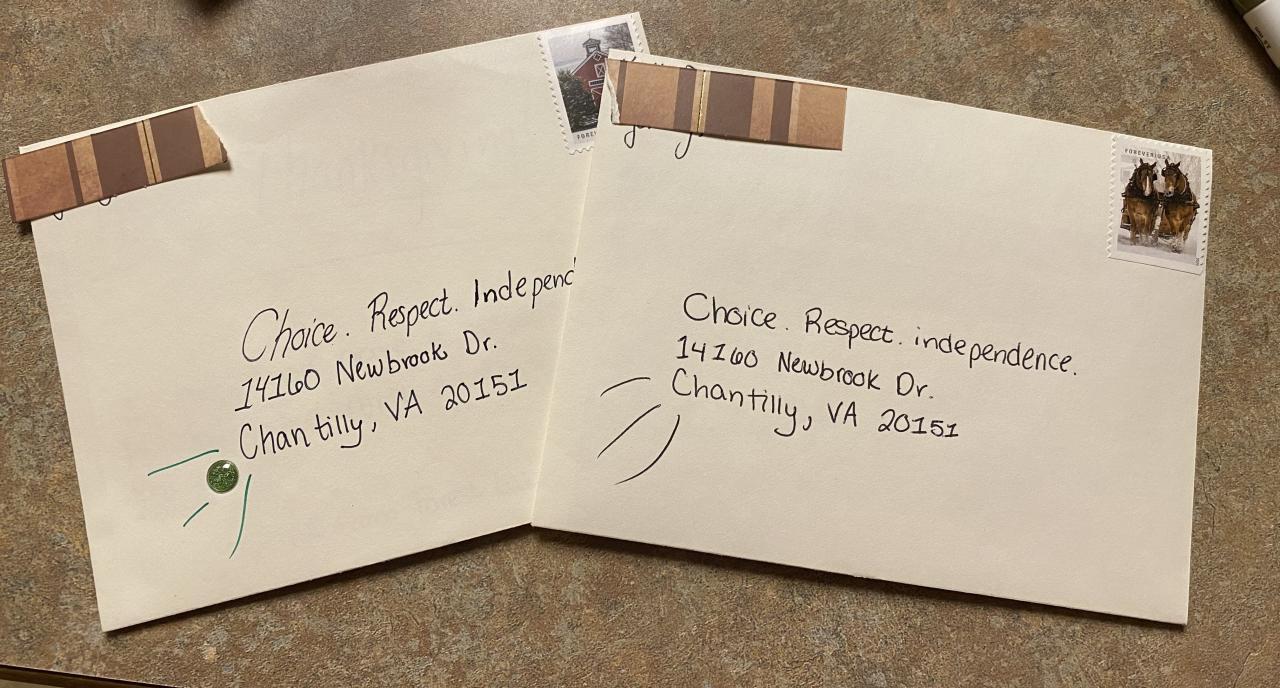 Choice. Respect. Independ
14160 Newbrook Dr.
Chantilly, VA 20151
FOREVER/USA
Choice. Respect. independence.
14160 Newbrook Dr.
Chantilly, VA 20151